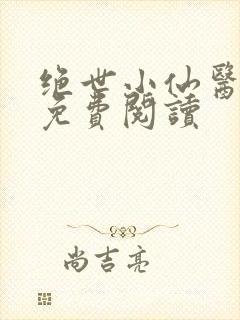 绝世小仙醫
免費閱讀
尚吉亮